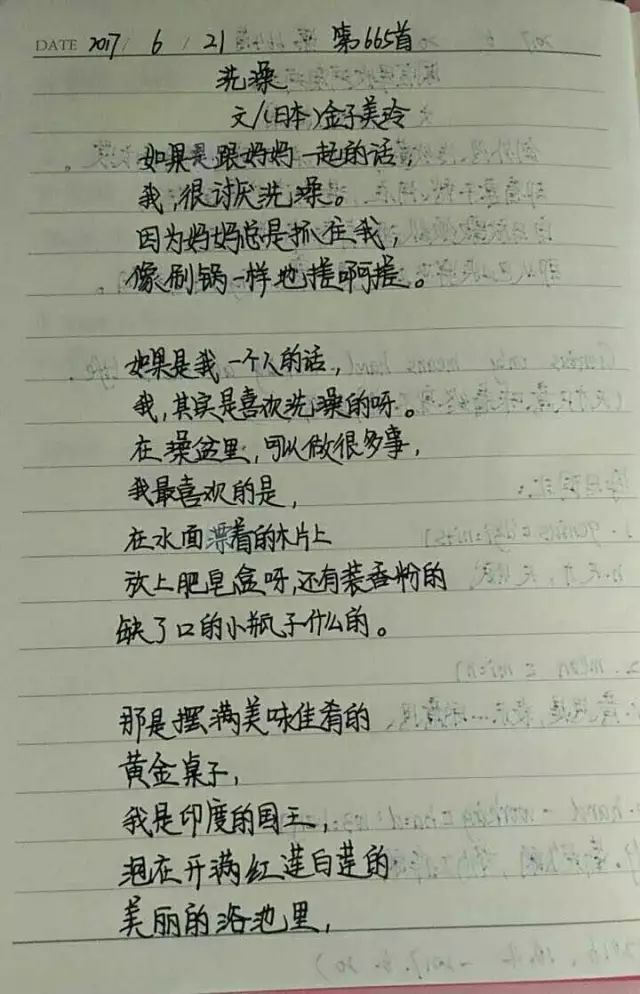 DATE 2017 / 6 / 21 第665首
洗澡
文/(日本)金子美玲
如果是跟妈妈一起的话,
我,很讨厌洗澡。
因为妈妈总是抓住我,
像刷锅一样地搓啊搓。
如果是我一个人的话,
我,其实是喜欢洗澡的呀。
在澡盆里,可以做很多事,
我最喜欢的是,
在水面漂着的木片上
放上肥皂盒呀,还有装香粉的
缺了口的小瓶子什么的。
那是摆满美味佳肴的
黄金桌子,
我是印度的国王,
泡在开满红莲白莲的
美丽的浴池里,